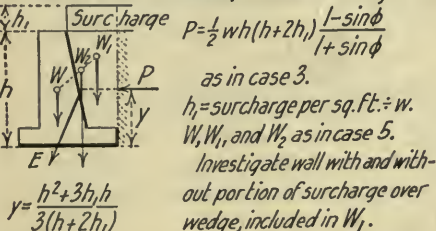 h₁
Surcharge
W₁
W₂
W
P
h
y
E
y = (h²+3h₁h)/(3(h+2h₁))
P=½ wh(h+2h₁) (1-sinϕ)/(1+sinϕ)
as in case 3.
h₁=surcharge per sq.ft.÷w.
W,W₁,and W₂ as in case 5.
Investigate wall with and with-
out portion of surcharge over
wedge, included in W₁.